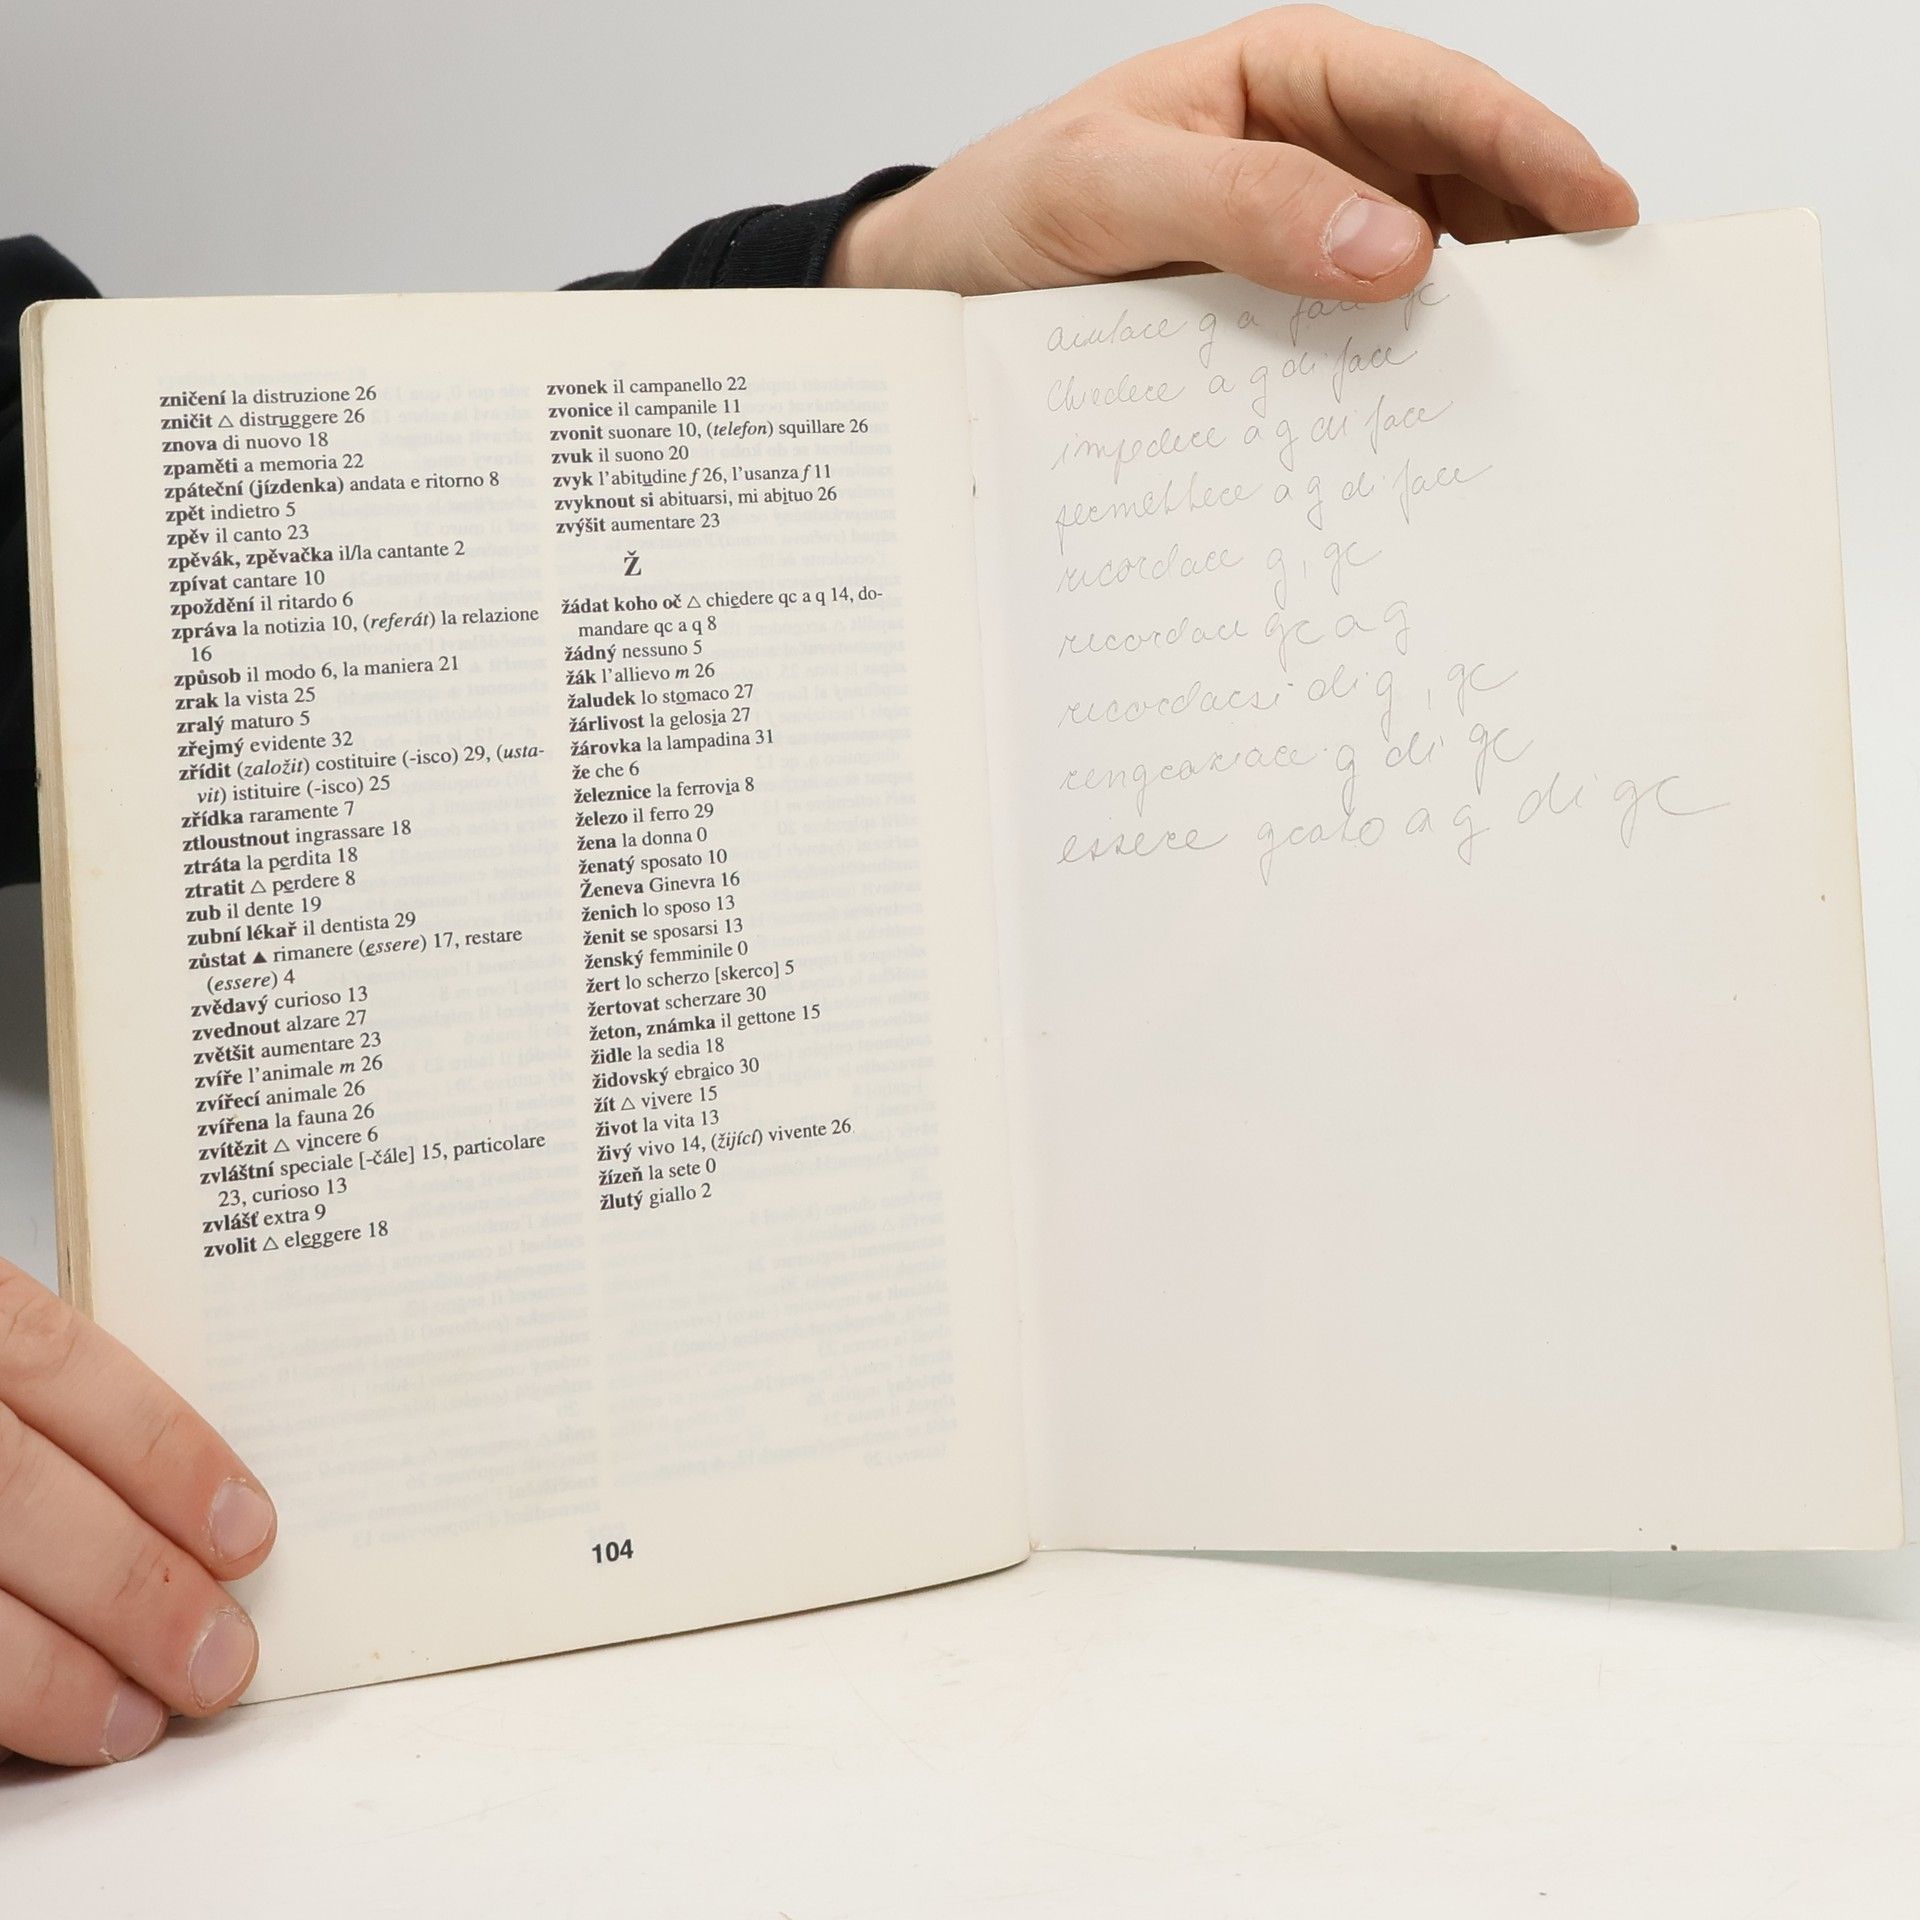 zničení la distruzione 26
zničit △ distruggere 26
znova di nuovo 18
zpaměti a memoria 22
zpáteční (jízdenka) andata e ritorno 8
zpět indietro 5
zpěv il canto 23
zpěvák, zpěvačka il/la cantante 2
zpívat cantare 10
zpoždění il ritardo 6
zpráva la notizia 10, (referát) la relazione
16
způsob il modo 6, la maniera 21
zrak la vista 25
zralý maturo 5
zřejmý evidente 32
zřídit (založit) costituire (-isco) 29, (usta-
vit) istituire (-isco) 25
zřídka raramente 7
ztloustnout ingrassare 18
ztráta la perdita 18
ztratit △ perdere 8
zub il dente 19
zubní lékař il dentista 29
zůstat ▲ rimanere (essere) 17, restare
(essere) 4
zvědavý curioso 13
zvednout alzare 27
zvětšit aumentare 23
zvíře l'animale m 26
zvířecí animale 26
zvířena la fauna 26
zvítězit △ vincere 6
zvláštní speciale [-čále] 15, particolare
23, curioso 13
zvlášť extra 9
zvolit △ eleggere 18
zvonek il campanello 22
zvonice il campanile 11
zvonit suonare 10, (telefon) squillare 26
zvuk il suono 20
zvyk l'abitudine f 26, l'usanza f 11
zvyknout si abituarsi, mi abituo 26
zvýšit aumentare 23
Ž
žádat koho oč △ chiedere qc a q 14, do-
mandare qc a q 8
žádný nessuno 5
žák l'allievo m 26
žaludek lo stomaco 27
žárlivost la gelosia 27
žárovka la lampadina 31
že che 6
železnice la ferrovia 8
železo il ferro 29
žena la donna 0
ženatý sposato 10
Ženeva Ginevra 16
ženich lo sposo 13
ženit se sposarsi 13
ženský femminile 0
žert lo scherzo [skerco] 5
žertovat scherzare 30
žeton, známka il gettone 15
židle la sedia 18
židovský ebraico 30
žít △ vivere 15
život la vita 13
živý vivo 14, (žijící) vivente 26
žízeň la sete 0
žlutý giallo 2
104
aiutare q a fare qc
chiedere a q di fare
impedire a q di fare
permettere a q di fare
ricordare q, qc
ricordare qc a q
ricordarsi di q, qc
ringraziare q di qc
essere grato a q di qc